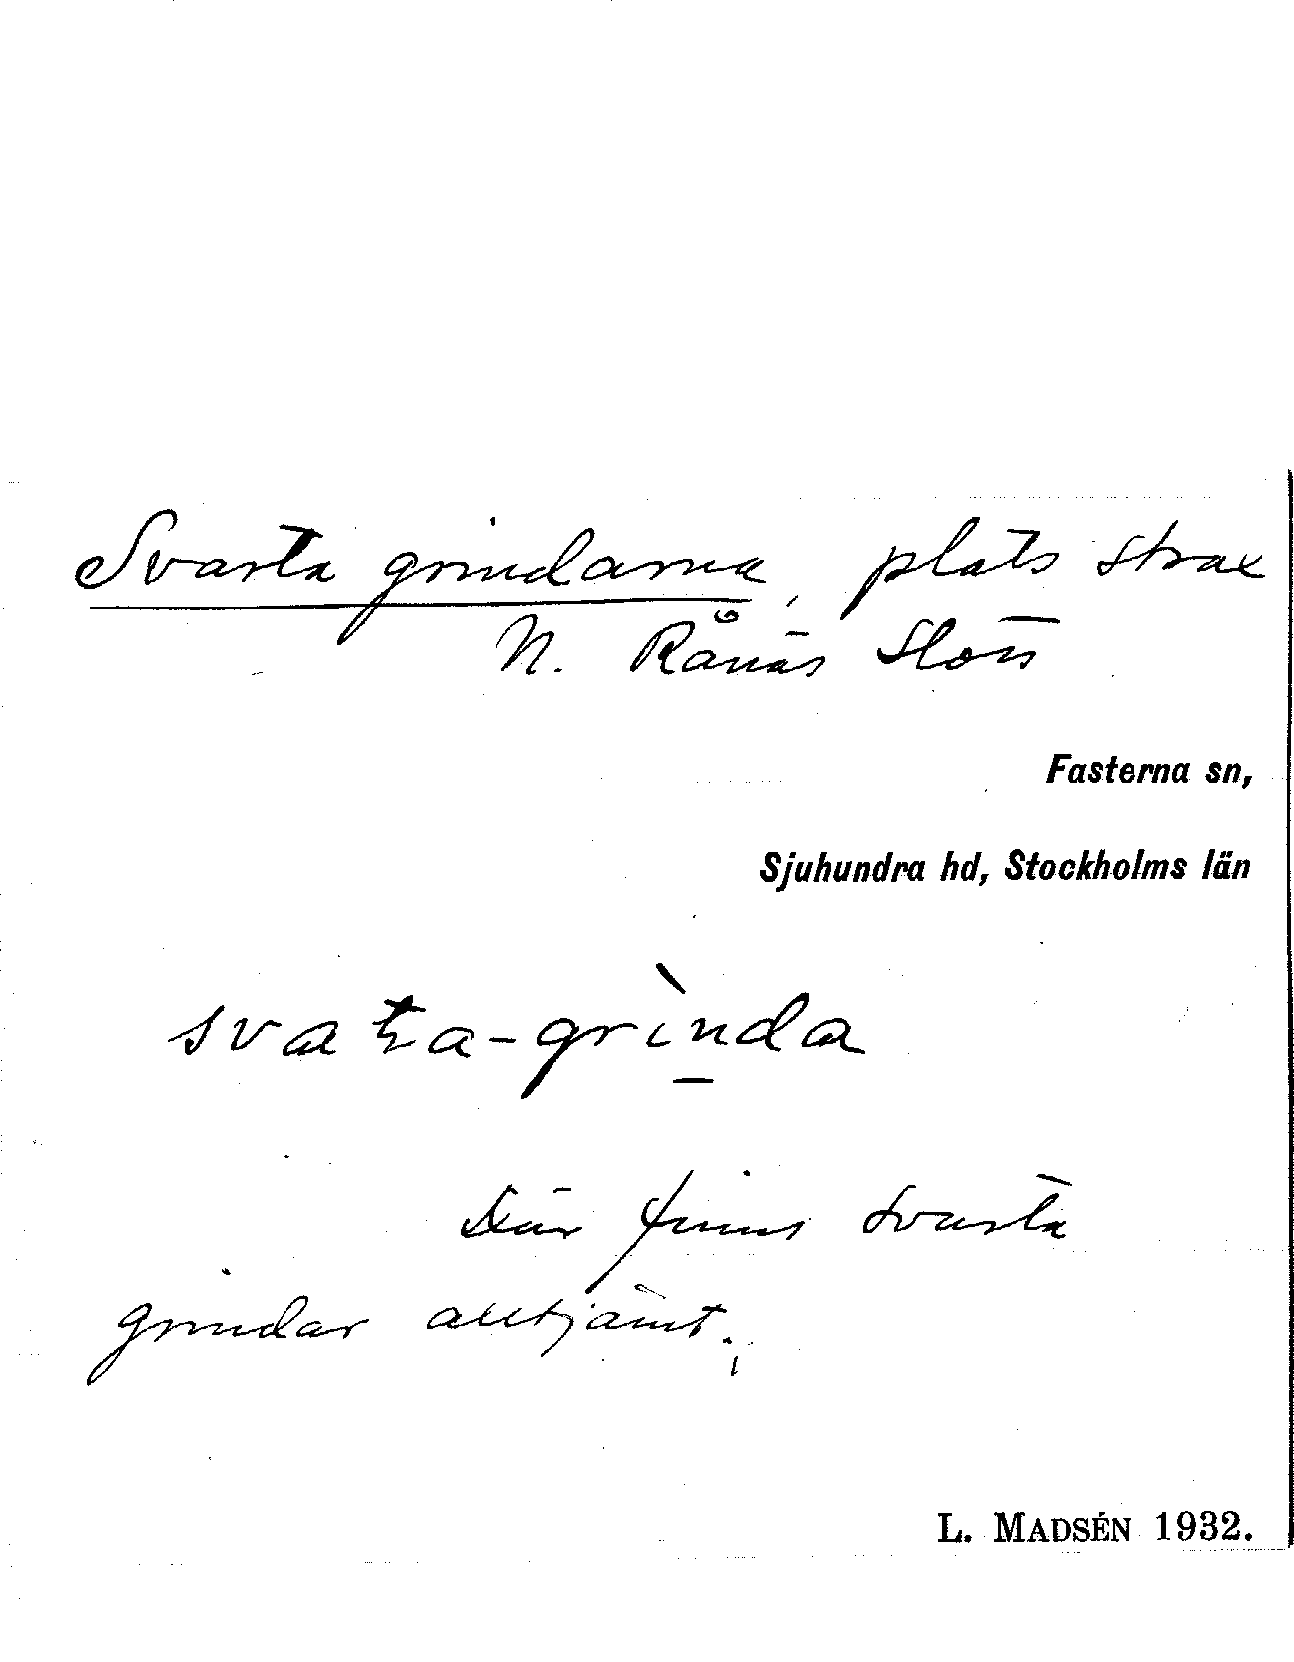 Svarta grindarna, plats strax
N. Rånäs slott
Fasterna sn,
Sjuhundra hd, Stockholms län
svaʈa-grìnda
Där finns svarta
grindar alltjämt.
L. MADSÉN 1932.